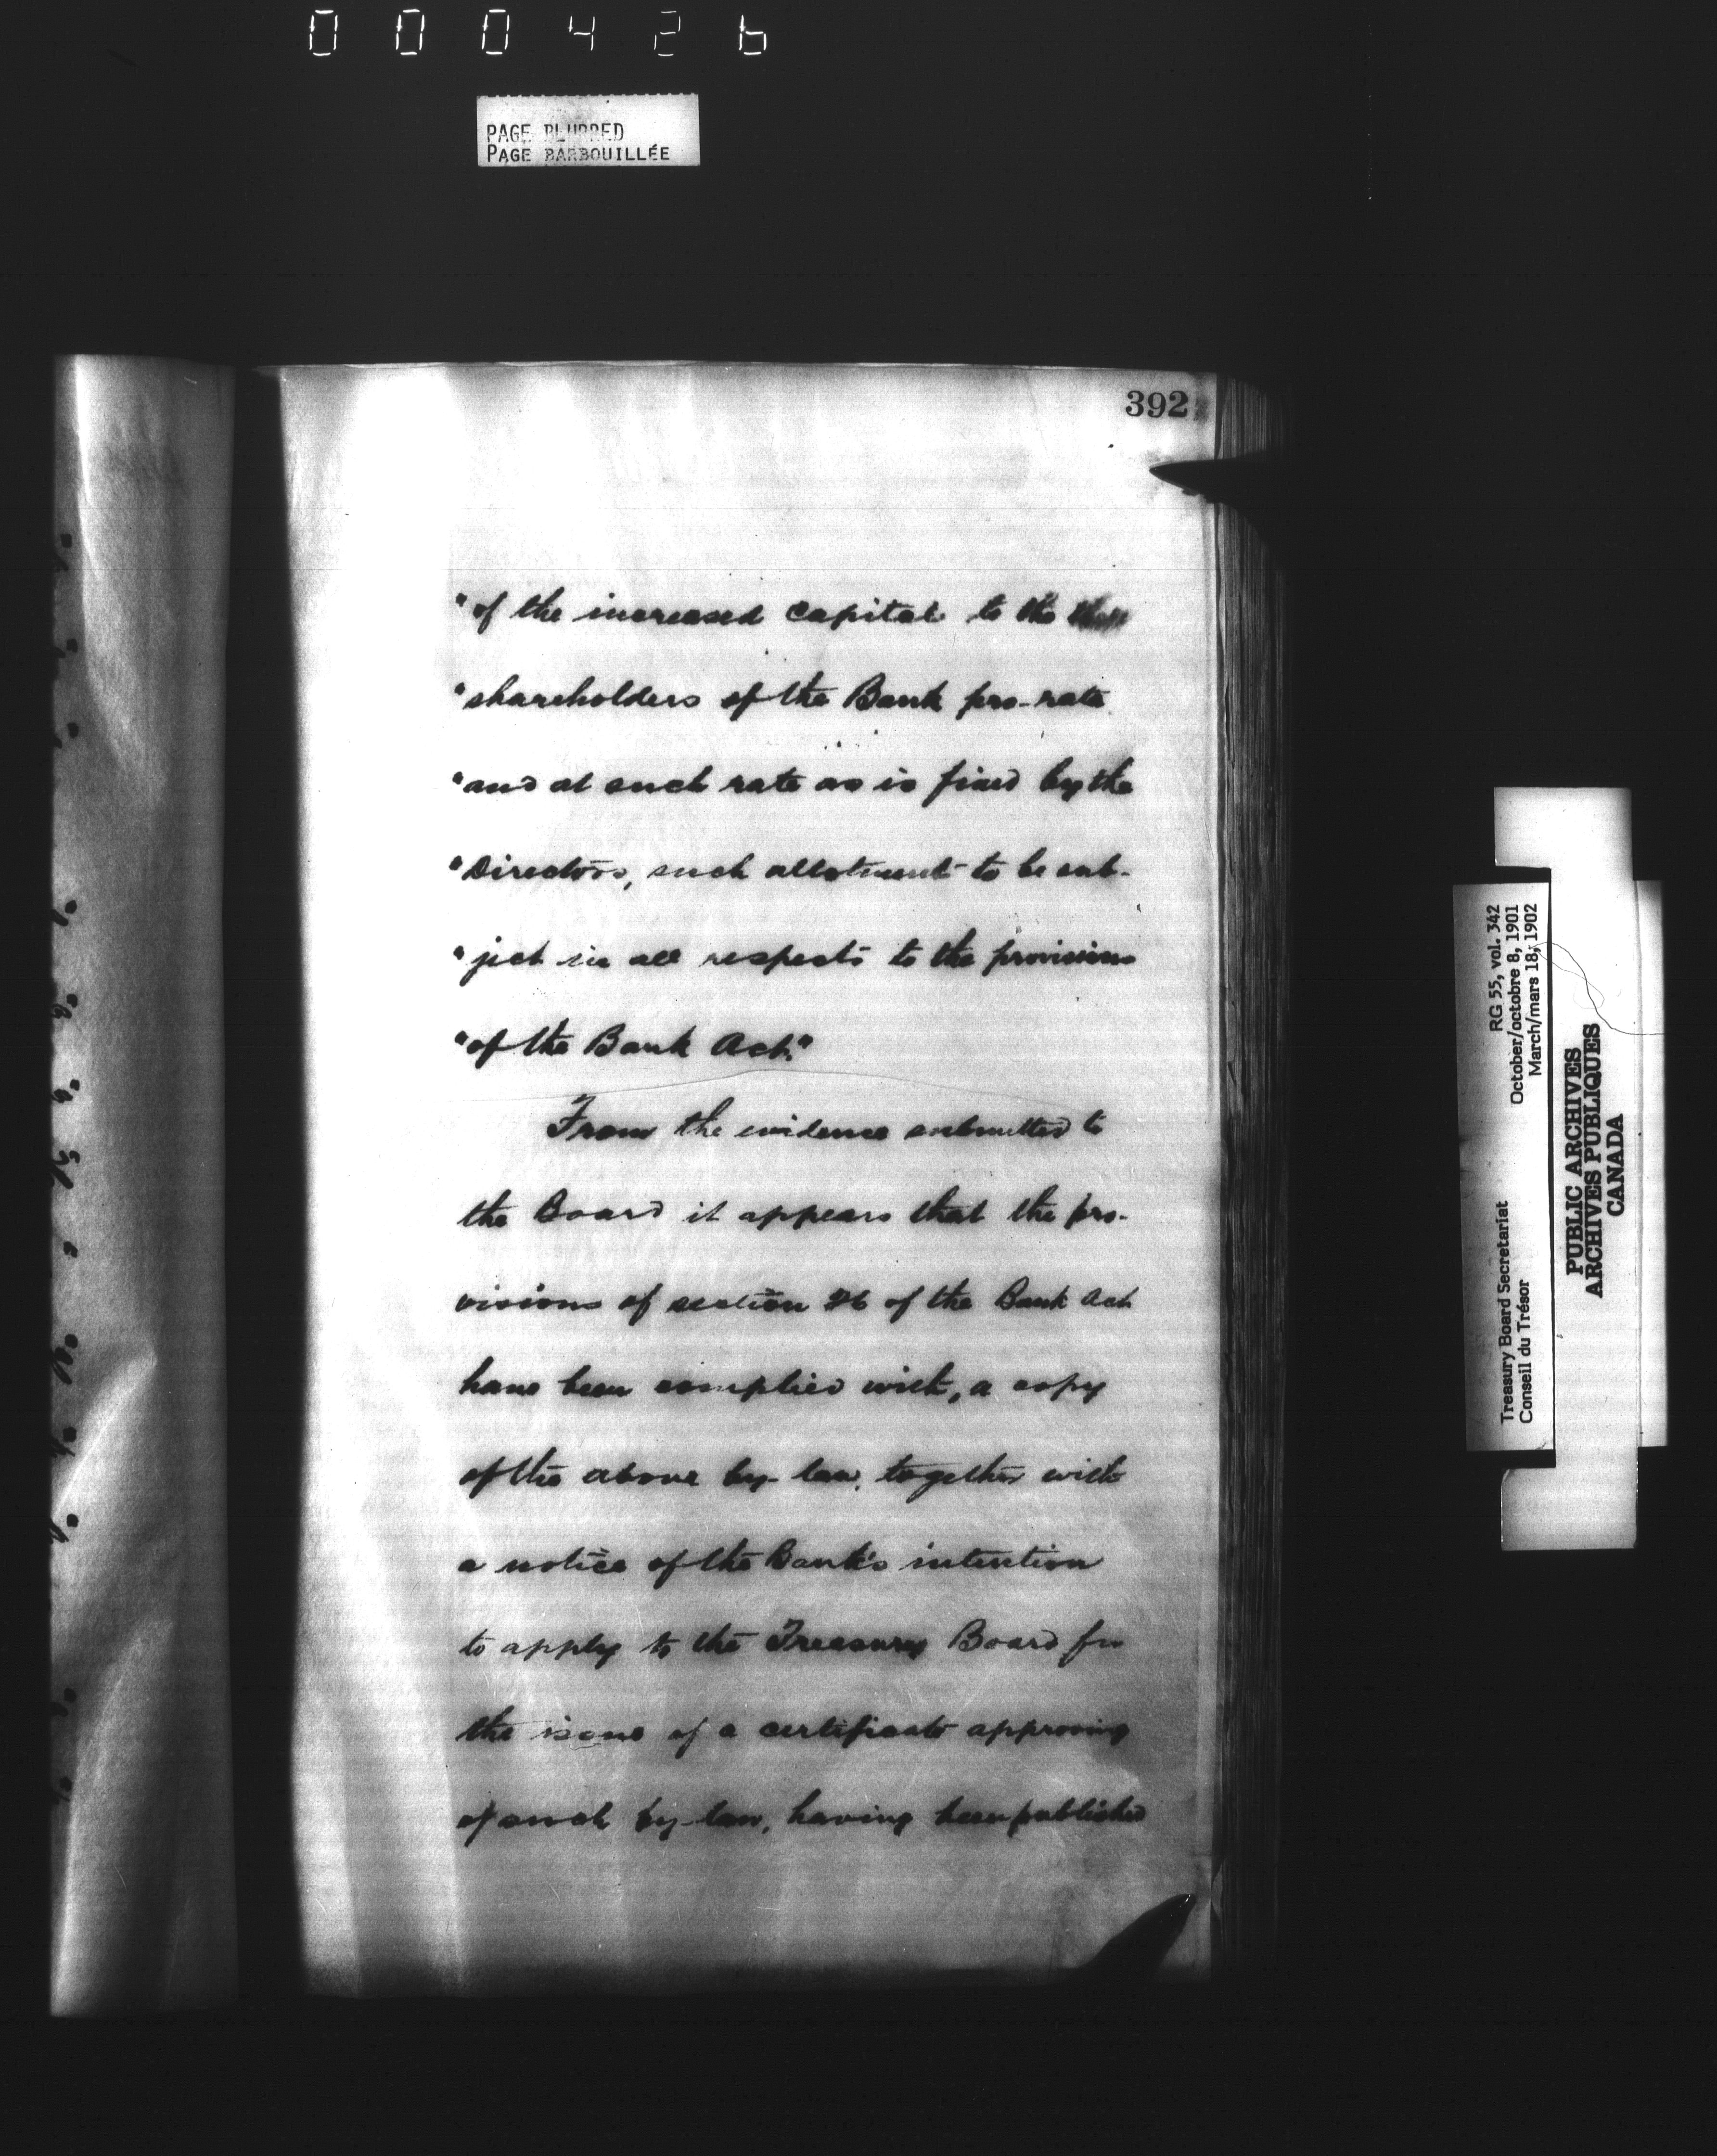 000426
PAGE BLURRED
PAGE BARBOUILLÉE
392
"of the increased capital to the then
"shareholders of the Bank pro-rata
"and at such rate as is fixed by the
"Directors, such allotment to be sub-
"ject in all respects to the provisions
"of the Bank Act."
From the evidence submitted to
the Board it appears that the pro-
visions of section 26 of the Bank Act
have been complied with, a copy
of the above by-law, together with
a notice of the Bank's intention
to apply to the Treasury Board for
the issue of a certificate approving
of such by-law, having been published
Treasury Board Secretariat RG 55, vol. 342
Conseil du Trésor October/octobre 8, 1901
March/mars 18, 1902
PUBLIC ARCHIVES
ARCHIVES PUBLIQUES
CANADA